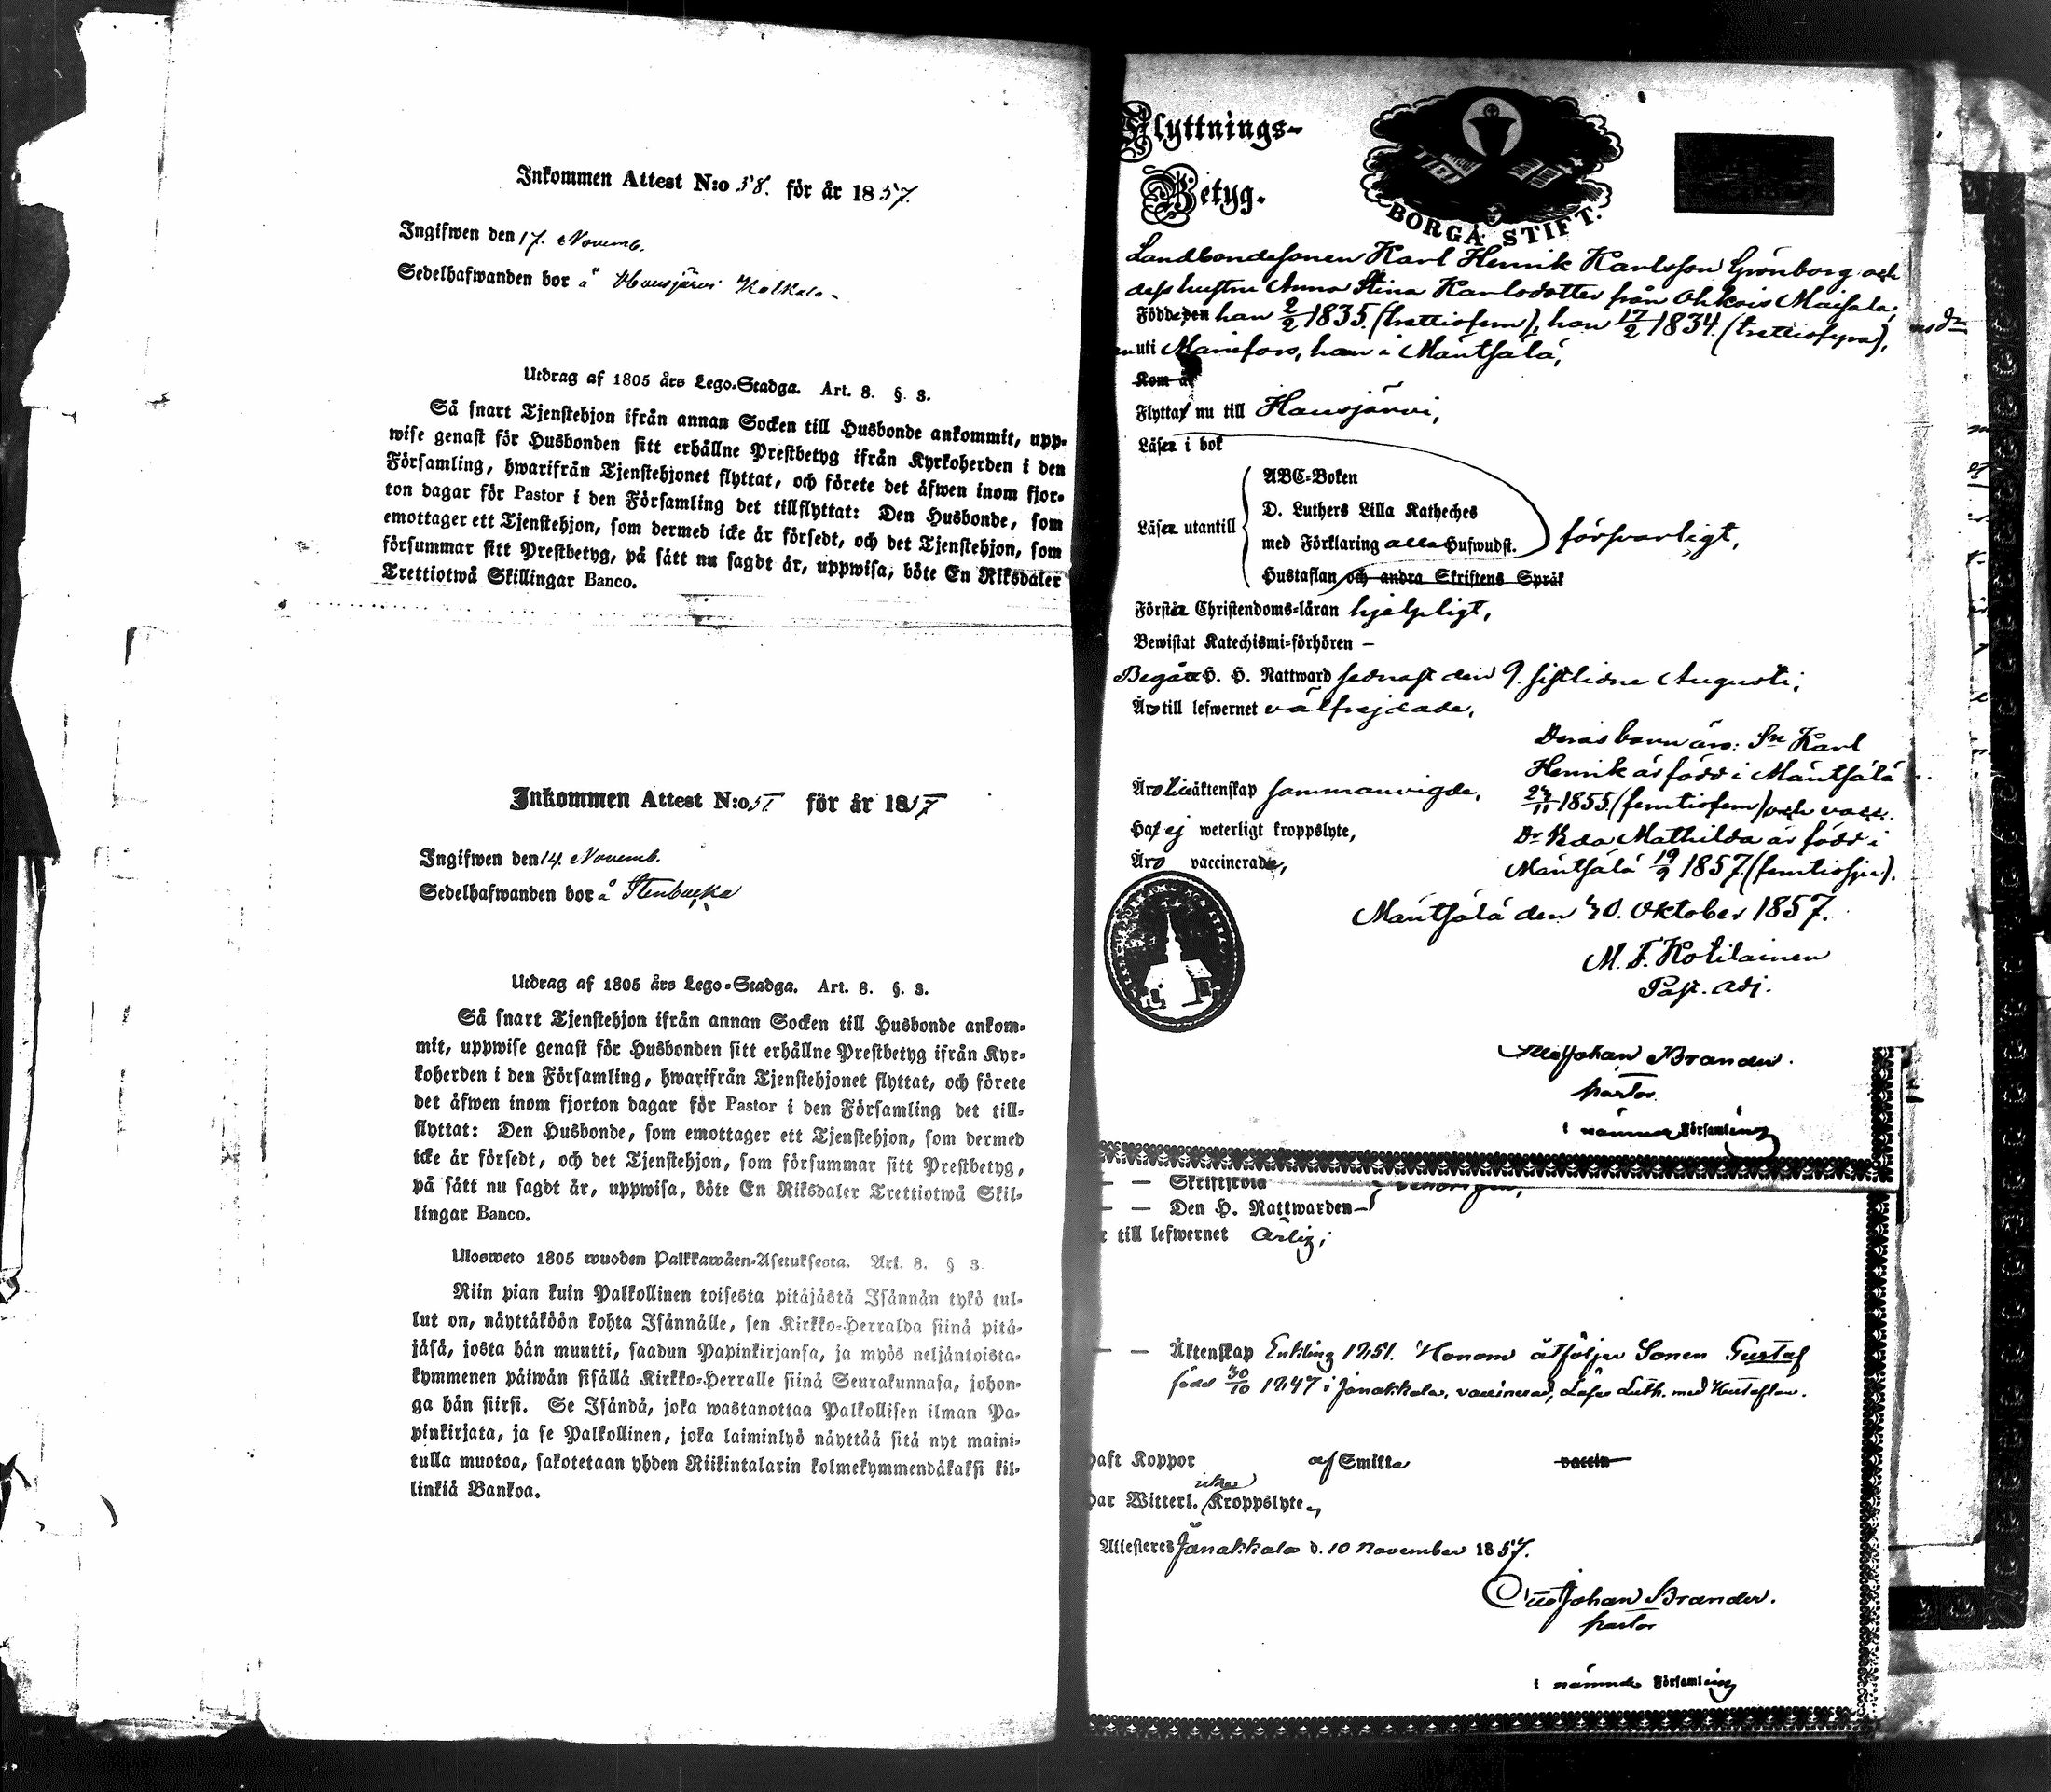 Inkommen Attest N:o 58. för år 1857.
Ingifwen den 17. Novemb.
Sedelhafwanden bor å Hausjärvi Kolkala
Utdrag af 1805 års Lego-Stadga. Art. 8. §. 3.
Så snart Tjenstehjon ifrån annan Socken till Husbonde ankommit, upp-
wise genast för Husbonden sitt erhållne Prestbetyg ifrån Kyrkoherden i den
Församling, hwarifrån Tjenstehjonet flyttat, och förete det äfwen inom fjor-
ton dagar för Pastor i den Församling det tillflyttat: Den Husbonde, som
emottager ett Tjenstehjon, som dermed icke är försedt, och det Tjenstehjon, som
försummar sitt Prestbetyg, på sätt nu sagdt är, uppwisa, böte En Riksdaler
Trettiotwå Skillingar Banco.
Inkommen Attest N:o 51 för år 1857
Ingifwen den 14 Novemb.
Sedelhafwanden bor å Stenbacka
Utdrag af 1805 års Lego-Stadga. Art. 8. §. 3.
Så snart Tjenstehjon ifrån annan Socken till Husbonde ankom-
mit, uppwise genast för Husbonden sitt erhållne Prestbetyg ifrån Kyr-
koherden i den Församling, hwarifrån Tjenstehjonet flyttat, och förete
det äfwen inom fjorton dagar för Pastor i den Församling det till-
flyttat: Den Husbonde, som emottager ett Tjenstehjon, som dermed
icke är försedt, och det Tjenstehjon, som försummar sitt Prestbetyg,
på sätt nu sagdt är, uppwisa, böte En Riksdaler Trettiotwå Skil-
lingar Banco.
Ulosweto 1805 wuoden Palkkawäen-Asetuksesta. Art. 8. § 3.
Niin pian kuin Palkollinen toisesta pitäjästä Isännän tykö tul-
lut on, näyttäköön kohta Isännälle, sen Kirkko-Herralda siinä pitä-
jäsä, josta hän muutti, saadun Papinkirjansa, ja myös neljäntoista-
kymmenen päiwän sisällä Kirkko-Herralle siinä Seurakunnasa, johon-
ga hän siirsi. Se Isändä, joka wastanottaa Palkollisen ilman Pa-
pinkirjata, ja se Palkollinen, joka laiminlyö näyttää sitä nyt maini-
tulla muotoa, sakotetaan yhden Riikintalarin kolmekymmendäkaksi kil-
linkiä Bankoa.
Flyttnings-
Betyg.
BORGÅ STIFT.
Landbondesonen Karl Henrik Karlsson Grönborg och
dess hustru Anna Stina Karlsdotter från Ohkois Maisala,
Födde den han 2/2 1835. (trettiofem), hon 17/2 1834. (trettiofyra),
uti Mariefors, hon i Mäntsälä,
Kom är
Flytta nu till Hausjärvi,
Läsa i bok
ABC-Boken
D. Luthers Lilla Katheches
Läsa utantill
med Förklaring alla Hufwudst.
försvarligt,
Hustaflan och andra Skriftens Språk
Förstå Christendoms-läran hjelpligt,
Bewistat Katechismi-förhören —
Begått H. H. Nattward sednast den 9. sistlidne Augusti,
Äro till lefwernet välfrejdade,
Deras barn äro: Sn Karl
Henrik är född i Mäntsälä
Äro i äktenskap sammanvigde,
1855. (femtiofem) och vacc.
Ha ej weterligt kroppslyte,
Dr Ida Mathilda är född i
Äro vaccinerade,
Mäntsälä 19/9 1857. (femtiosju).
Mäntsälä den 30. Oktober 1857.
M. F. Kotilainen
Past. adj.
Johan Brander.
pastor
i nämnde Församling
— — Skriftskola
— — Den H. Nattwarden
till lefwernet ärlig;
— — Äktenskap Enkling 1851. Honom åtföljer Sonen Gustaf
född 30/10 1847 i Janakkala, vaccinerad, Läser Luth. med Hustaflan.
haft Koppor af Smitta vaccin
icke
har Witterl. Kroppslyte
Attesteres Janakkala d. 10 November 1857.
Johan Brander.
pastor
i nämnde Församling